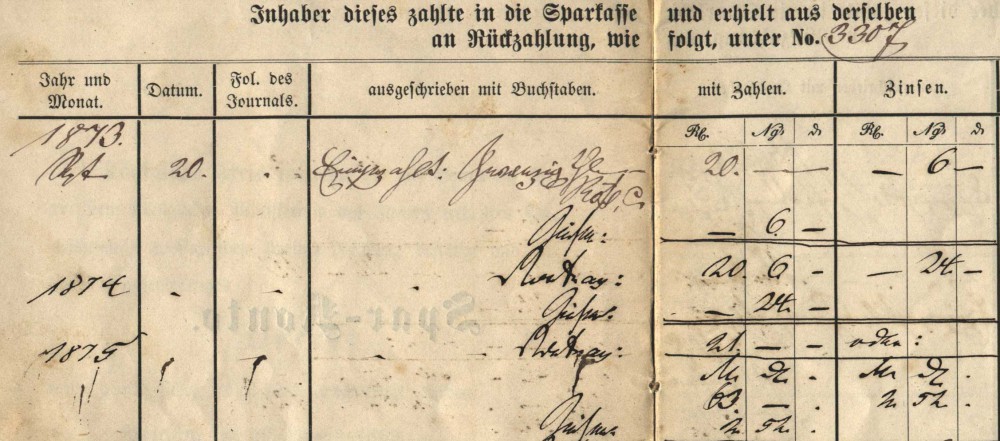 Inhaber dieses zahlte in die Sparkasse und erhielt aus derselben
an Rückzahlung, wie folgt, unter No. 3307
Jahr und Monat. Datum. Fol. des Journals. ausgeschrieben mit Buchstaben. mit Zahlen. Zinsen.
Rℓ. Ngr ₰ Rℓ. Ngr ₰
1873.
Sept 20. Eingezahlt: Zwanzig 20. — — — 6 —
Zinsen: — 6 —
1874 Vortrag: 20. 6 - — 24 —
Zinsen: — 24 .
1875 Vortrag: 21. — - oder:
M. ₰ . M. ₰ .
63 — . 2 52 .
Zinsen 2 52 .